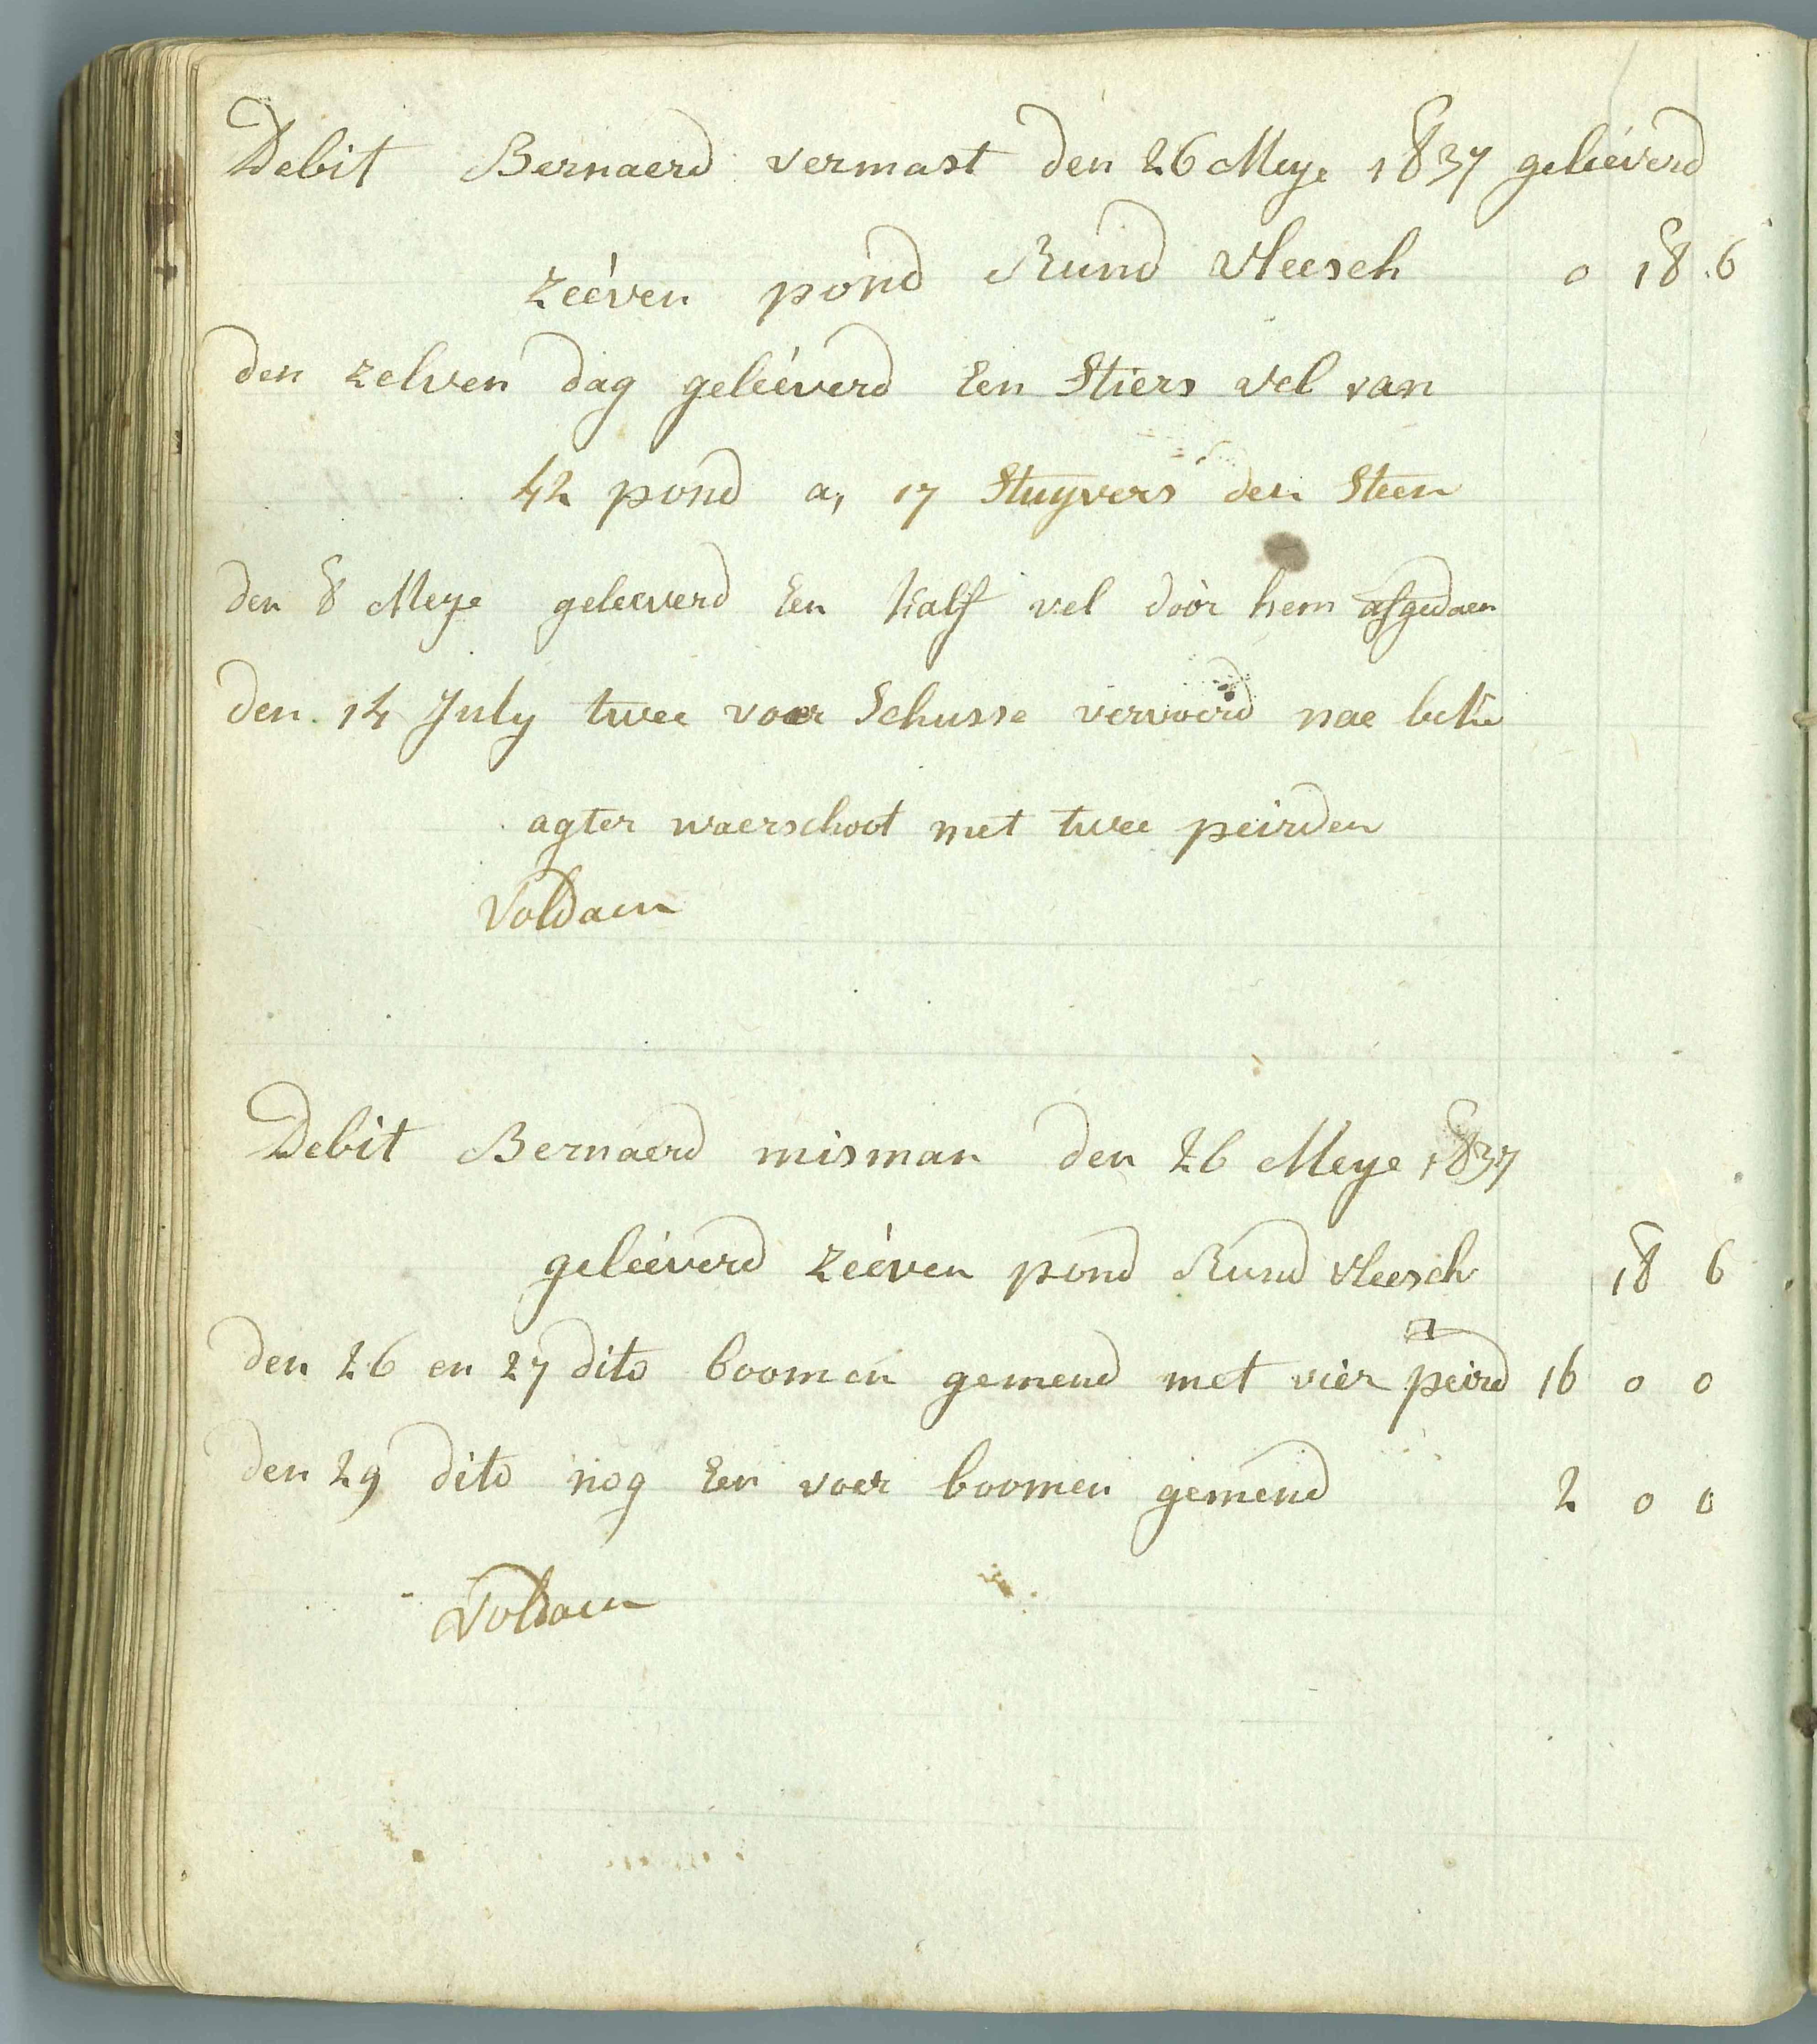 Debit Bernaerd vermast den 26 Meye 1837 geleéverd
zeéven pond Rund vleesch 0 18 6
den zelven dag geleéverd Een Stiers vel van
42 pond a, 17 Stuyvers den Steen
den 8 Meye geleeverd Een kalf vel door hem afgedaen
den 14 July twee voer Schusse vervoerd nae
agter waerschoot met twee peirden
Voldaen
Debit Bernaerd misman den 26 Meye 1837
geleéverd zeéven pond Rund vleesch 18 6
den 26 en 27 dito boomen gemend met vier peird 16 0 0
den 29 dito nog Een voer boomen gemend 2 0 0
Voldaen